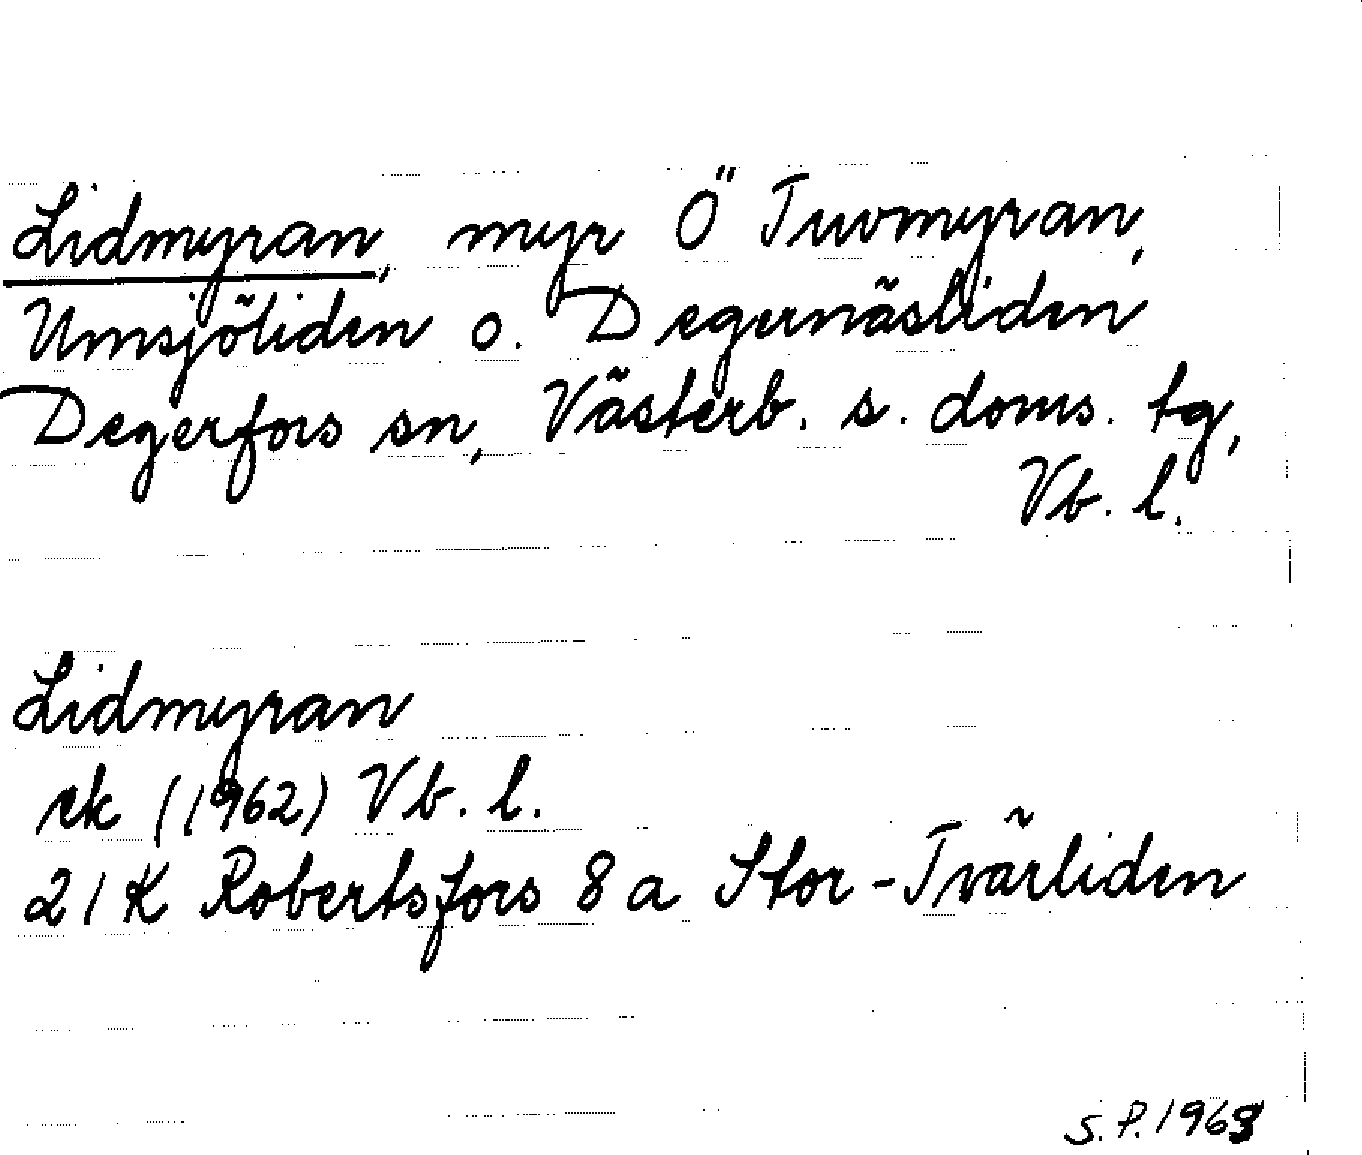 Lidmyran, myr Ö Tuvmyran,
Umsjöliden o. Degernäsliden
Degerfors sn, Västerb. s. doms. tg,
Vb. l.
Lidmyran
ek (1962) Vb. l.
21K Robertsfors 8a Stor-Tvärliden
S.P.1969